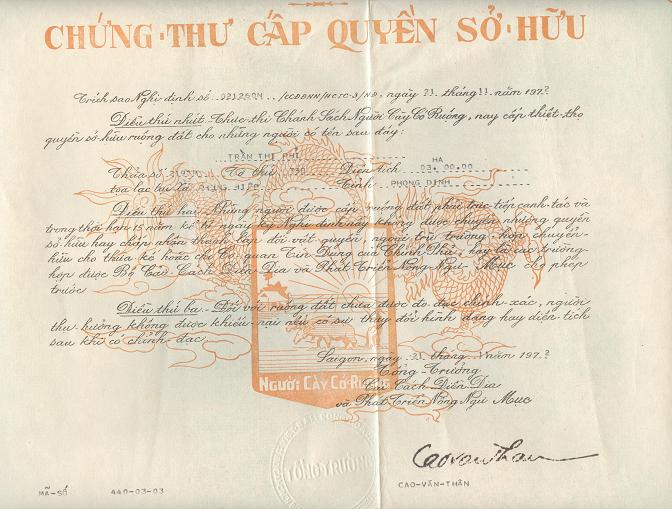 CHỨNG-THƯ CẤP QUYỀN SỞ-HỮU
Trích sao Nghị-định số 0212504 /CCĐĐNN/HCTC-3/NĐ, ngày tháng 11 năm 197
Điều thứ nhứt- Thực-thi Chánh Sách Người Cày Có Ruộng, nay cấp thiệt-thọ
quyền sở-hữu ruộng đất cho những người có tên sau đây:
TRẦN THỊ PHỈ HA
Thửa số Tờ thứ 730 Diện Tích 03.00.00
tọa lạc tại Xã HIỆP Tỉnh PHONG DINH
Điều thứ hai- Những người được cấp ruộng đất phải trực tiếp canh-tác và
trong thời hạn 15 năm kể từ ngày ký Nghị định này không được chuyển nhượng quyền
sở-hữu hay chấp nhận thành lập đối vật-quyền, ngoại trừ trường-hợp chuyển-
hữu cho thừa kế hoặc cho Cơ-quan Tín Dụng của Chính Phủ, hay là các trường-
hợp được Bộ Cải Cách Điền Địa và Phát Triển Nông Ngư Mục cho phép
trước
Điều thứ ba- Đối với ruộng đất chưa được đo đạc chính-xác, người
thụ hưởng không được khiếu-nại nếu có sự thay đổi hình dạng hay diện tích
sau khi có chỉnh-đạc.
Saigon, ngày tháng năm 197
Tổng-Trưởng
Cải Cách Điền-Địa
và Phát Triển Nông Ngư Mục
NGƯỜI CÀY CÓ RUỘNG
TỔNG TRƯỞNG
Caovanthan
MÃ-SỐ 440-03-03
CAO-VĂN-THÂN